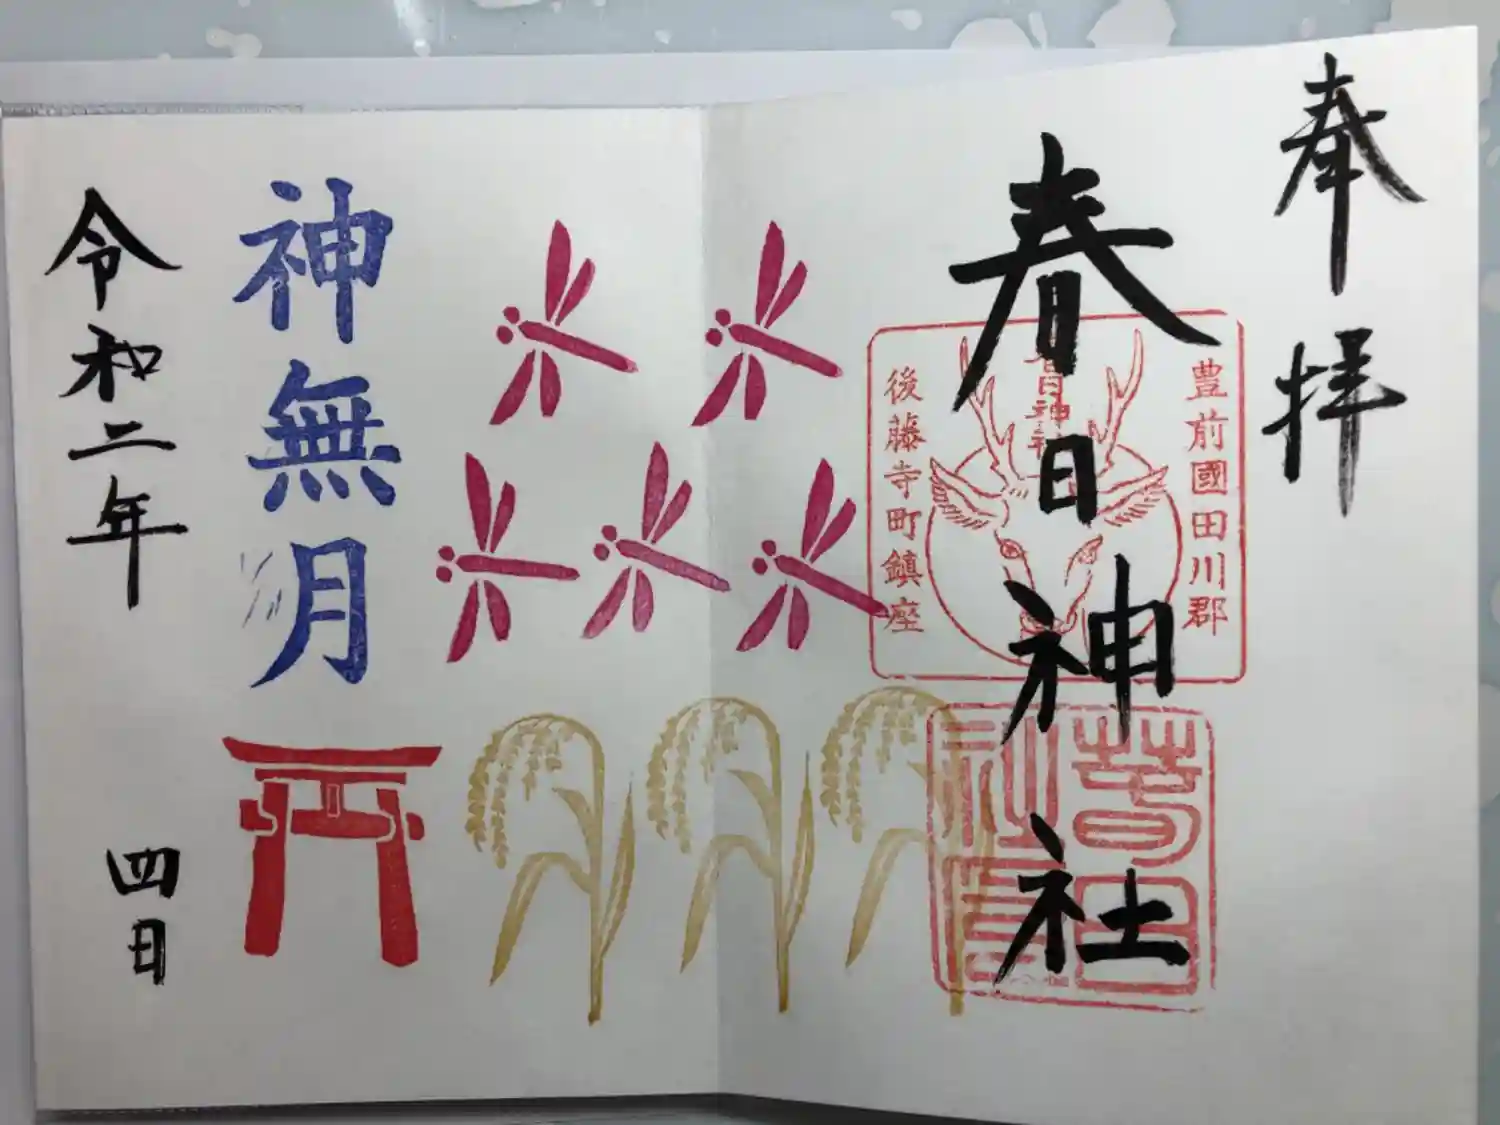 奉拝
豊前國田川郡
春日神社
春日神社
後藤寺町鎮座
神無月
令和二年
四日